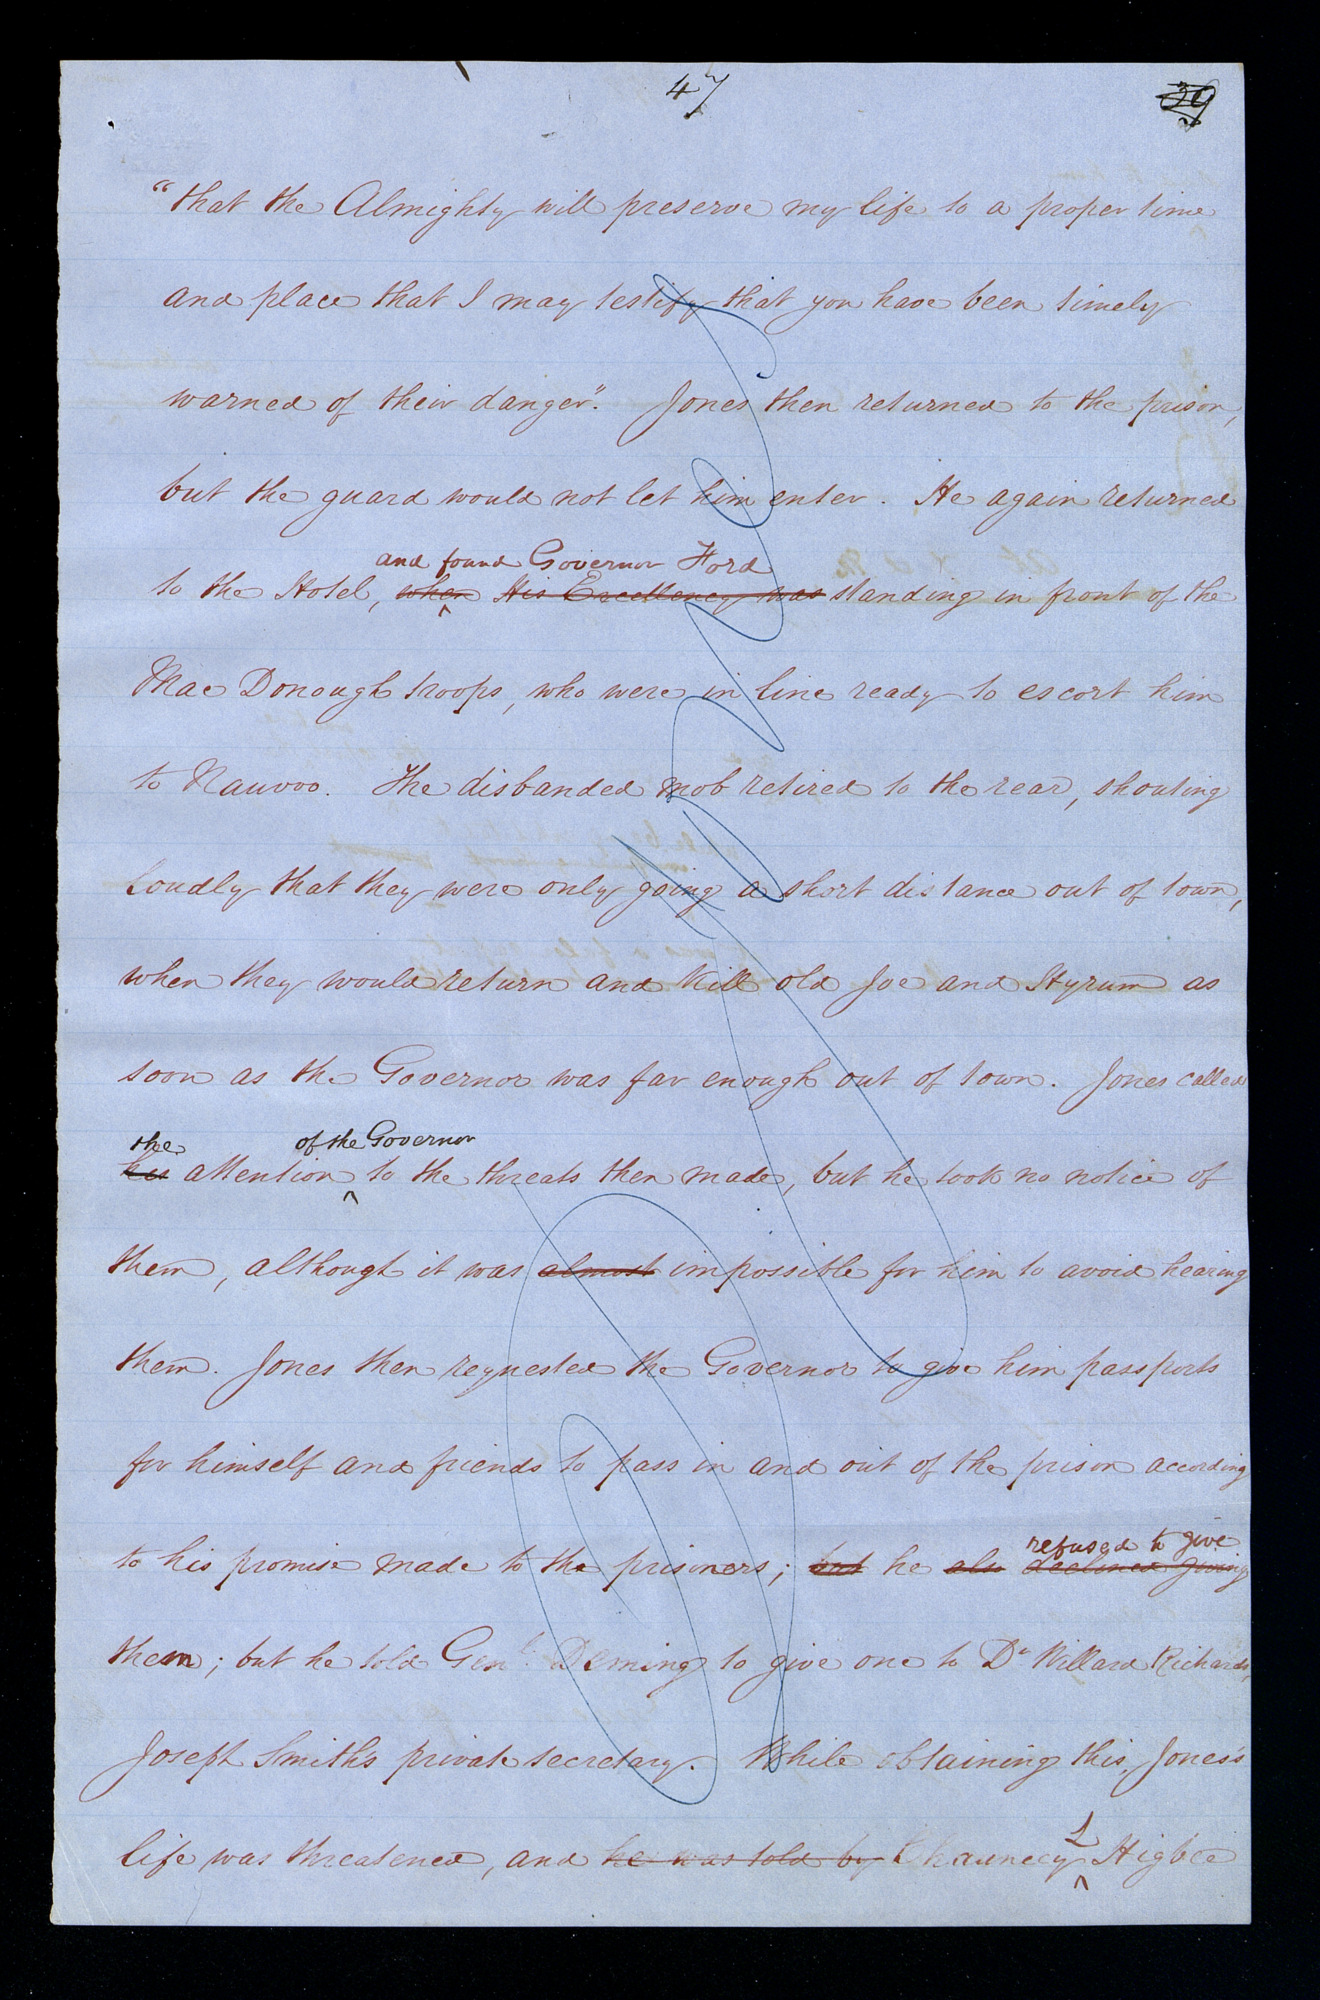 47 39
"that the Almighty will preserve my life to a proper time
and place that I may testify that you have been timely
warned of their danger". Jones then returned to the prison,
but the guard would not let him enter. He again returned
and found Governor Ford
to the Hotel, when His Excellency was standing in front of the
Mac Donough troops, who were in line ready to escort him
to Nauvoo. The disbanded mob retired to the rear, shouting
loudly that they were only going a short distance out of town,
when they would return and kill old Joe and Hyrum as
soon as the Governor was far enough out of town. Jones called
the of the Governor
his attention to the threats then made, but he took no notice of
them, although it was almost impossible for him to avoid hearing
them. Jones then requested the Governor to give him passports
for himself and friends to pass in and out of the prison according
refused to give
to his promise made to the prisoners; but he also declined giving
them; but he told Genl. Deming to give one to Dr Willard Richards,
Joseph Smith's private secretary. While obtaining this, Jones's
L
life was threatened, and he was told by Chauncey Higbee